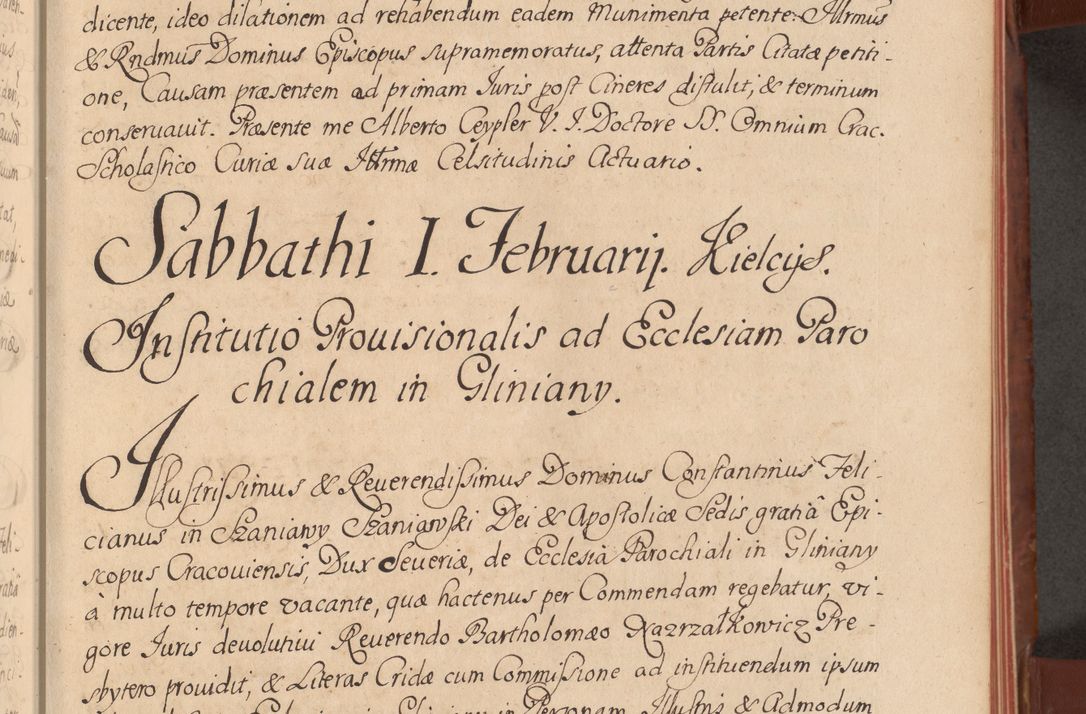 dicente, ideo dilationem ad rehabendum eadem Munimenta petente. Illrmus
& Rndmus Dominus Episcopus supramemoratus, attenta Partis Citatæ petiti-
one, Causam præsentem ad primam Juris post Cineres distulit, & terminum
conseruauit. Præsente me Alberto Ceypler V. J. Doctore SS. Omnium Crac.
Scholastico Curiæ suæ Illrmæ Celsitudinis Actuario.
Sabbathi I. Februarij. Kielcijs.
Institutio Prouisionalis ad Ecclesiam Paro
chialem in Gliniany.
Illustrissimus & Reuerendissimus Dominus Constantinus Feli-
cianus in Szaniawy Szaniawski Dei & Apostolicæ Sedis gratiâ Epi-
scopus Cracouiensis, Dux Seueriæ, de Ecclesia Parochiali in Gliniany
à multo tempore vacante, quæ hactenus per Commendam regebatur, vi-
gore Juris deuolutiui Reuerendo Bartholomæo Nazrzałkowicz Pre-
sbytero prouidit, & Literas Cridæ cum Commissione ad instituendum ipsum
in Personam Illustris & Admodum